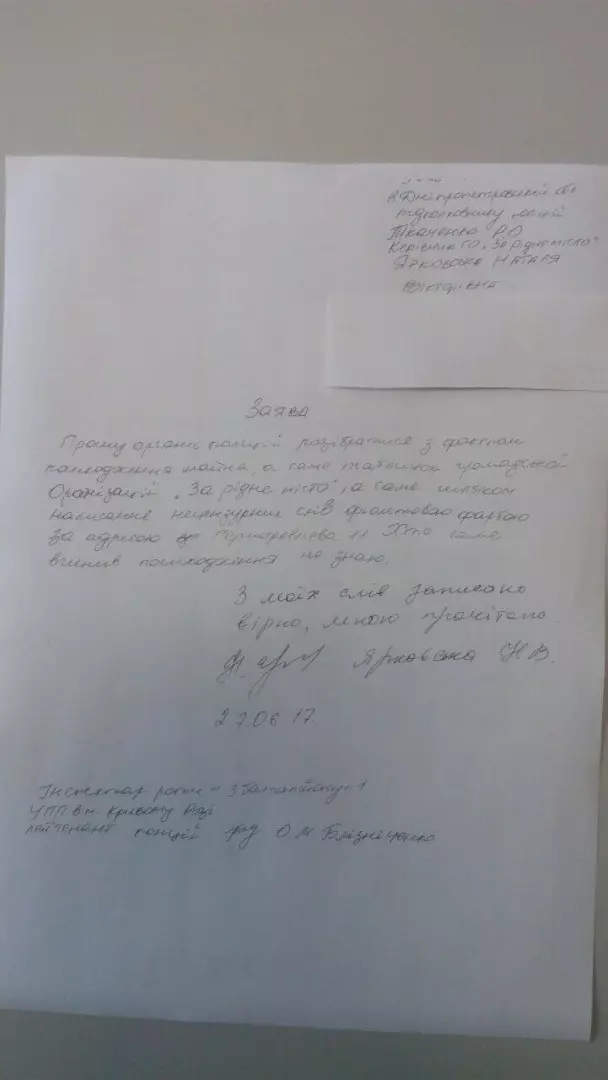 в Дніпропетровській обл
підполковнику поліції
Ткаченко Р.О
Керівник ГО „За рідне місто"
Ярковська Наталя
Вікторівна
Заява
Прошу органи поліції розібратися з фактом
пошкодження майна, а саме таблички громадської
Організації „За рідне місто", а саме шляхом
написання нецензурних слів фіолетовою фарбою
за адресою
Хто саме
вчинив пошкодження не знаю.
З моїх слів записано
вірно, мною прочитано.
Ярковська Н.В.
27.06 17
Інспектор роти 3 батальйону 1
УПП в м. Кривому Розі
лейтенант поліції О.М